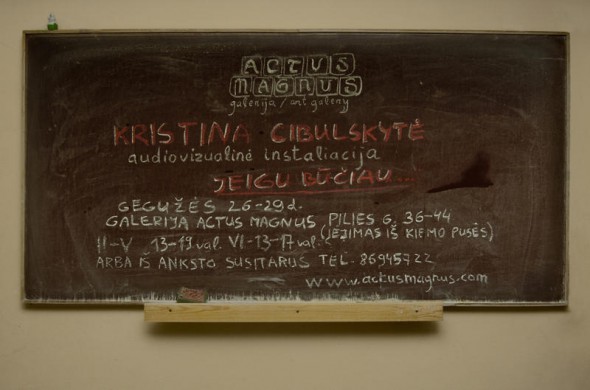 ACTUS
MAGNUS
galerija / art galery
KRISTINA CIBULSKYTĖ
audiovizualinė instaliacija
JEIGU BŪČIAU...
GEGUŽĖS 26-29d.
GALERIJA ACTUS MAGNUS PILIES G. 36-44
(ĮĖJIMAS IŠ KIEMO PUSĖS)
II-V 13-19 val. VI-13-17 val.
ARBA IŠ ANKSTO SUSITARUS TEL. 86945722
www.actusmagnus.com